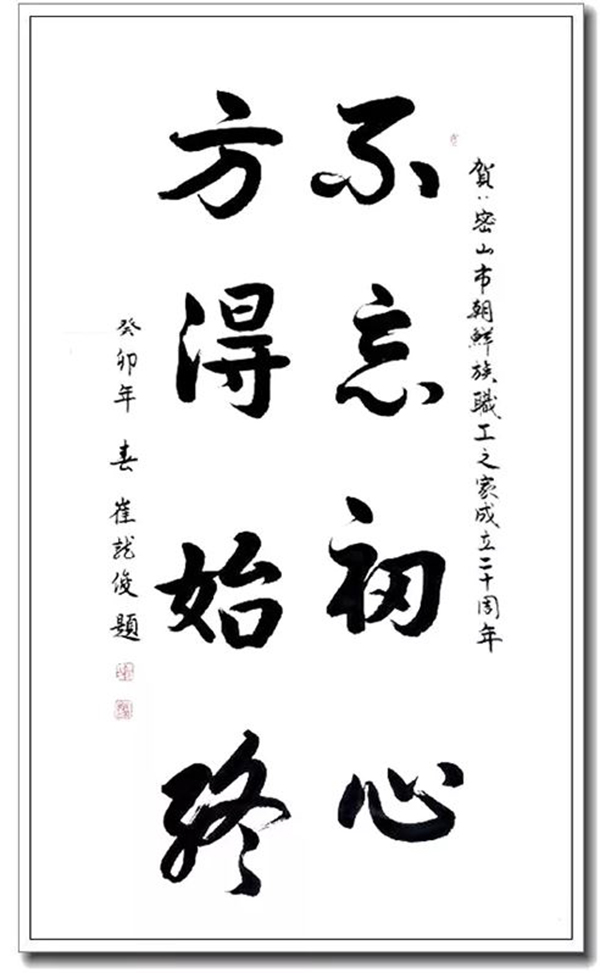 賀:密山市朝鮮族職工之家成立二十周年
不忘初心
方得始終
癸卯年春崔龍俊題